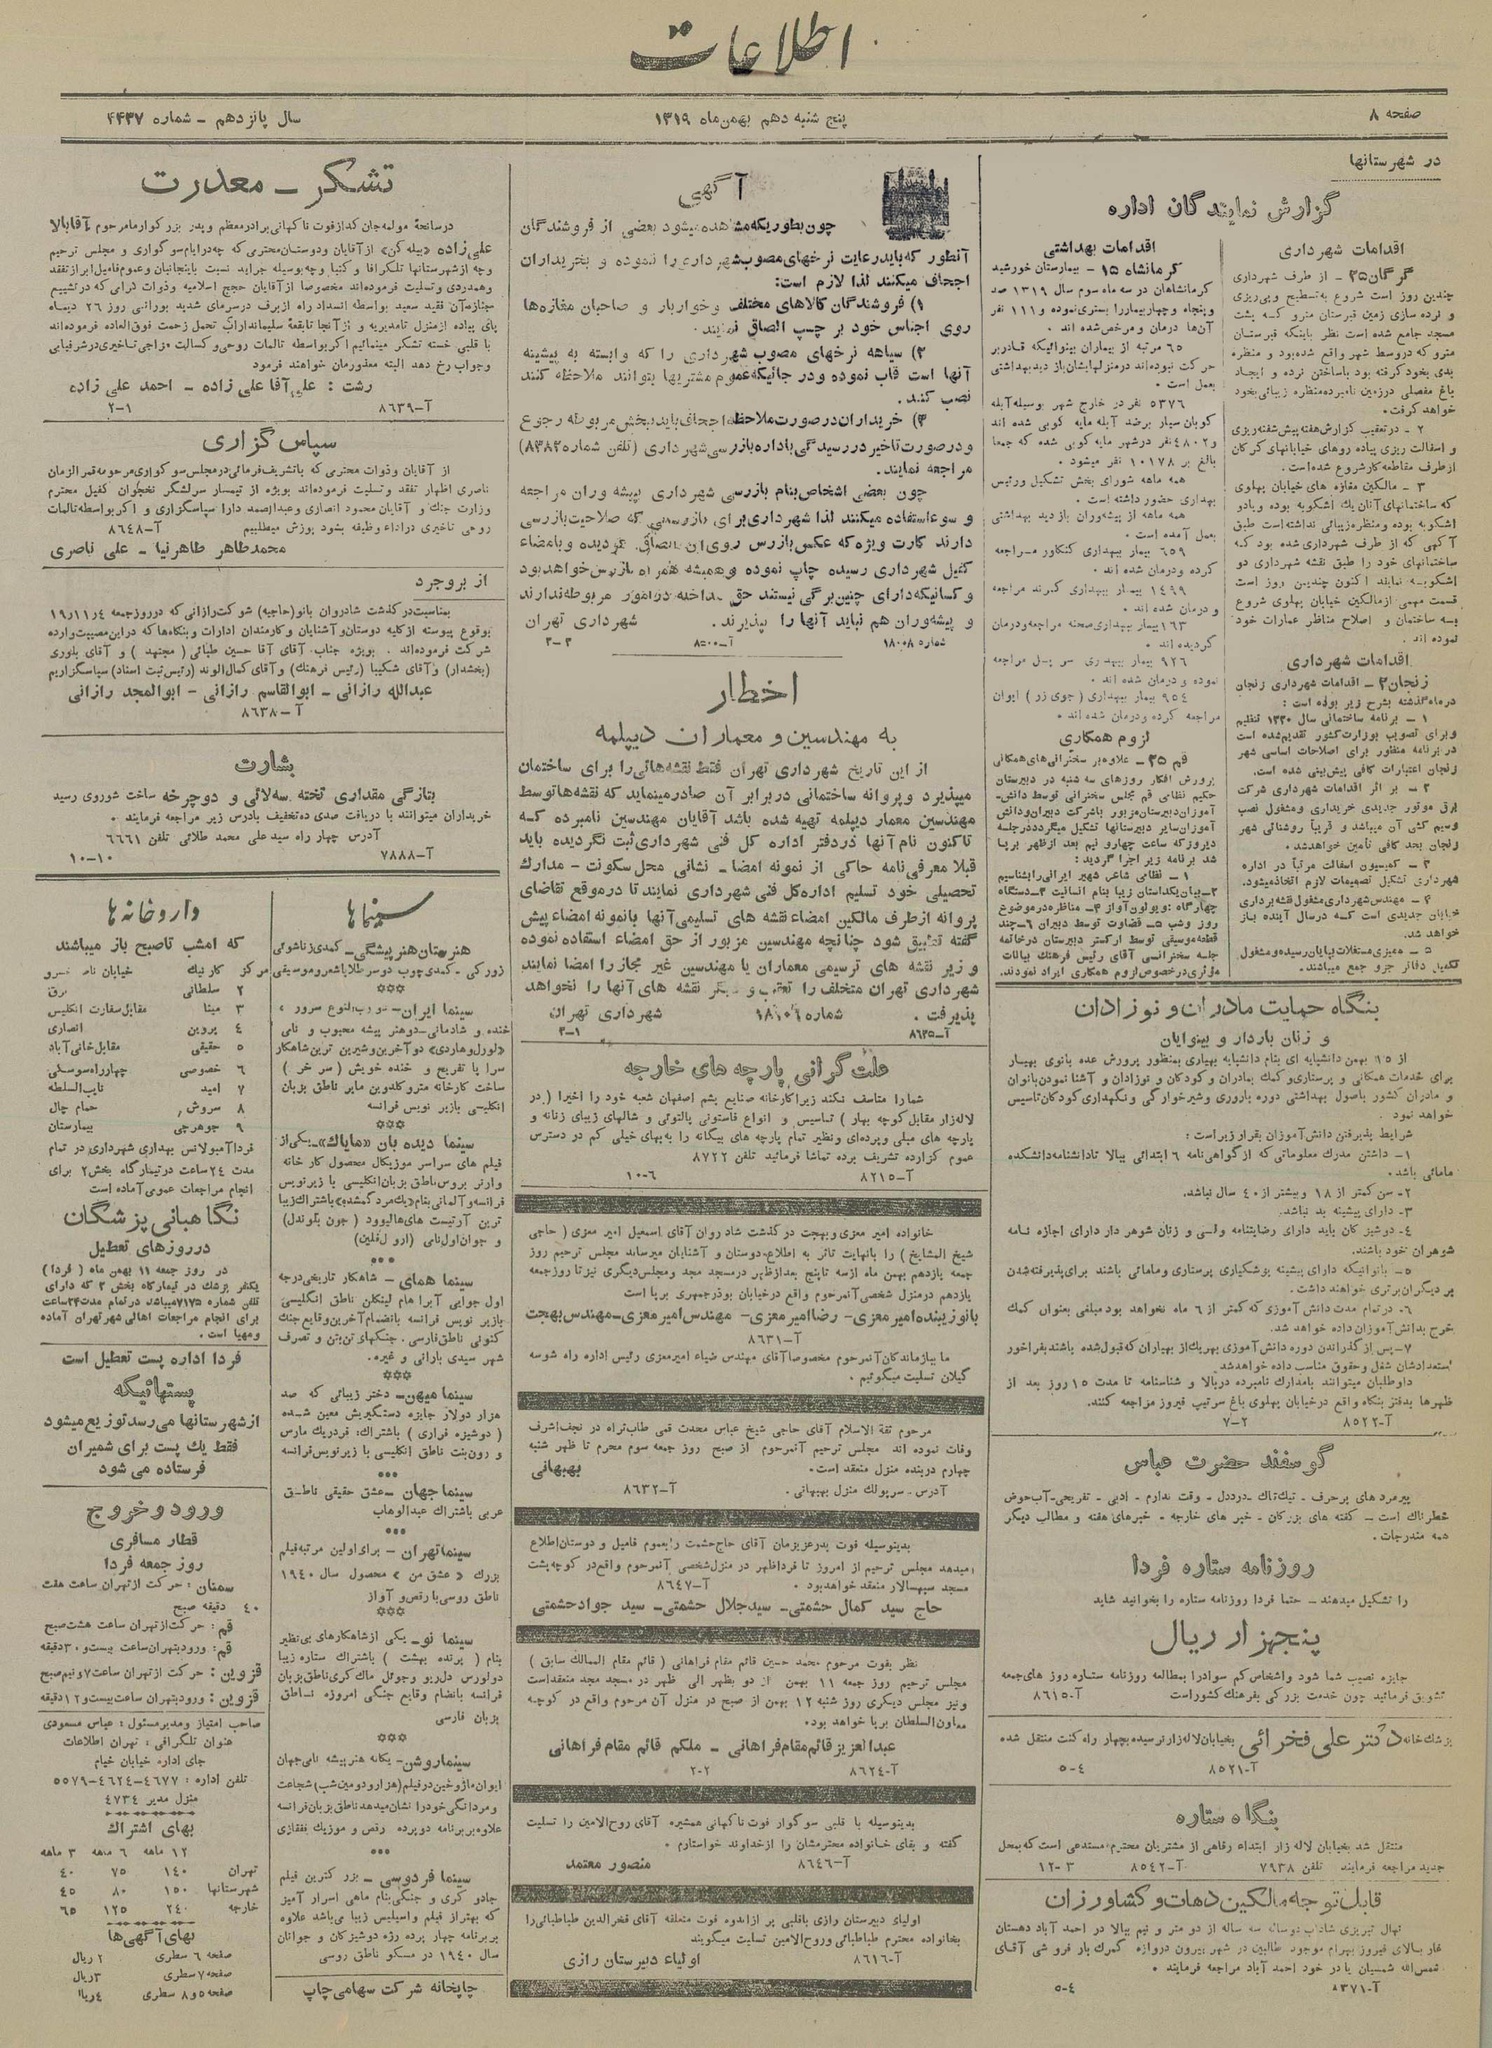 اطلاعات
صفحه ۸
پنج شنبه دهم بهمن ماه ۱۳۱۹
سال پانزدهم ـ شماره ۴۴۳۷
در شهرستانها
گزارش نمایندگان اداره
اقدامات شهرداری
گرگان ۲۵ ـ از طرف شهرداری
چندین روز است شروع به تسطیح و پی‌ریزی
و نرده سازی زمین قبرستان مترو که پشت
مسجد جامع شده است نظر باینکه قبرستان
مترو که در وسط شهر واقع شده بود و منظره
بدی بخود گرفته بود با ساختن نرده و ایجاد
باغ مفصلی در زمین نامبرده منظره زیبائی بخود
خواهد گرفت.
۲ ـ در تعقیب گزارش هفته پیش شفته ریزی
و اسفالت ریزی پیاده روهای خیابانهای گرگان
از طرف مقاطعه کار شروع شده است.
۳ ـ مالکین مغازه های خیابان پهلوی
که ساختمانهای آنان یك اشکوبه بوده و یا دو
اشکوبه بوده و منظره زیبائی نداشته است طبق
آگهی که از طرف شهرداری شده بود که
ساختمانهای خود را طبق نقشه شهرداری دو
اشکوبه نمایند اکنون چندین روز است
قسمت مهمی از مالکین خیابان پهلوی شروع
به ساختمان و اصلاح مناظر عمارات خود
نموده اند.
اقدامات شهرداری
زنجان ۲ ـ اقدامات شهرداری زنجان
در ماه گذشته بشرح زیر بوده است :
۱ ـ برنامه ساختمانی سال ۱۳۲۰ تنظیم
و برای تصویب بوزارت کشور تقدیم شده است
در برنامه منظور برای اصلاحات اساسی شهر
زنجان اعتبارات کافی پیش بینی شده است.
۲ ـ بر اثر اقدامات شهرداری شرکت
برق موتور جدیدی خریداری و مشغول نصب
و سیم کشی آن میباشد و قریباً روشنائی شهر
زنجان بحد کافی تأمین خواهد شد.
۳ ـ کمیسیون اسفالت مرتباً در اداره
شهرداری تشکیل تصمیمات لازم اتخاذ میشود.
۴ ـ مهندس شهرداری مشغول نقشه برداری
خیابان جدیدی است که در سال آینده باز
خواهد شد.
۵ ـ ممیزی مستغلات بپایان رسیده و مشغول
تکمیل دفاتر جزو جمع میباشند.
اقدامات بهداشتی
کرمانشاه ۱۵ ـ بیمارستان خورشید
کرمانشاهان در سه ماه سوم سال ۱۳۱۹ صد
و پنجاه و چهار بیمار را بستری نموده و ۱۱۱ نفر
آن‌ها درمان و مرخص شده اند .
۶۵ مرتبه از بیماران بینوائیکه قادر بر
حرکت نبوده اند در منزلهایشان بازدید بهداشتی
بعمل است .
۵۳۷۶ نفر در خارج شهر بوسیله آبله
کوبان سیار برضد آبله مایه کوبی شده اند
و ۴۸۰۲ نفر در شهر مایه کوبی شده که جمعا
بالغ بر ۱۰۱۷۸ نفر میشود .
همه ماهه شورای بخش تشکیل و رئیس
بهداری حضور داشته است .
همه ماهه از پیشه‌وران بازدید بهداشتی
بعمل آمده است .
۶۵۹ بیمار ببهداری کنگاور مراجعه
کرده و درمان شده اند .
۱۴۹۹ بیمار ببهداری کرند مراجعه
و درمان شده اند .
۱۶۳ بیمار ببهداری صحنه مراجعه و درمان
گردیده اند .
۹۲۶ بیمار ببهداری سر پل مراجعه
نموده و درمان شده اند .
۹۵۴ بیمار ببهداری ( جوی زر ) ایوان
مراجعه کرده و درمان شده اند .
لزوم همکاری
قم ۲۵ ـ علاوه بر سخنرانی های همگانی
پرورش افکار روزهای سه شنبه در دبیرستان
حکیم نظامی قم مجلس سخنرانی توسط دانش-
آموزان دبیرستان مزبور با شرکت دبیران و دانش
آموزان سایر دبیرستانها تشکیل میگردد در جلسه
دیروز که ساعت چهار و نیم بعد از ظهر برپا
شد برنامه زیر اجرا گردید :
۱ ـ نظامی شاعر شهیر ایرانی را بشناسیم
۲ـ بیان یك داستان زیبا بنام انسانیت ۳ـ دستگاه
چهارگاه : ویولون آواز ۴ـ مناظره در موضوع
روز و شب ۵ـ قضاوت توسط دبیران ۶ـ چند
قطعه موسیقی توسط ارکستر دبیرستان در خاتمه
جلسه سخنرانی آقای رئیس فرهنگ بیانات
مؤثری در خصوص لزوم همکاری ایراد نمودند.
بنگاه حمایت مادران و نوزادان
و زنان باردار و بینوایان
از ۱۵ بهمن دانشپایه ای بنام دانشپایه بهیاری بمنظور پرورش عده بانوی بهیار
برای خدمات همگانی و پرستاری و کمك بمادران و کودکان و نوزادان و آشنا نمودن بانوان
و مادران کشور باصول بهداشتی دوره باروری و شیرخوارگی و نگهداری کودکان تاسیس
خواهد نمود .
شرایط پذیرفتن دانش آموزان بقرار زیر است :
۱ـ داشتن مدرك معلوماتی که از گواهی نامه ۶ ابتدائی ببالا تا دانشنامه دانشکده
مامائی باشد .
۲ـ سن کمتر از ۱۸ و بیشتر از ۴۰ سال نباشد.
۳ـ دارای پیشینه بد نباشد.
۴ـ دوشیزگان باید دارای رضایتنامه ولی و زنان شوهر دار دارای اجازه نامه
شوهران خود باشند.
۵ـ بانوانیکه دارای پیشینه پزشکیاری پرستاری و مامائی باشند برای پذیرفته شدن
بر دیگران برتری خواهند داشت.
۶ـ در تمام مدت دانش آموزی که کمتر از ۶ ماه نخواهد بود مبلغی بعنوان کمك
خرج بدانش آموزان داده خواهد شد.
۷ـ پس از گذراندن دوره دانش آموزی بهر یك از بهیاران که قبول شده باشند بفراخور
استعدادشان شغل و حقوق مناسب داده خواهد شد.
داوطلبان میتوانند با مدارك نامبرده در بالا و شناسنامه تا مدت ۱۵ روز بعد از
ظهرها بدفتر بنگاه واقع در خیابان پهلوی باغ سرتیپ فیروز مراجعه کنند.
آ ـ ۸۵۲۲
۷ـ۲
گوسفند حضرت عباس
پیرمرد های پرحرف ـ تیك تاك ـ درد دل ـ وقت ندارم ـ ادبی ـ تفریحی ـ آب حوض
خطرناك است ـ گفته های بزرگان ـ خبر های خارجه ـ خبرهای هفته و مطالب دیگر
همه مندرجات .
روزنامه ستاره فردا
را تشکیل میدهند ـ حتما فردا روزنامه ستاره را بخوانید شاید
پنجهزار ریال
جایزه نصیب شما شود و اشخاص کم سواد را بمطالعه روزنامه ستاره روز های جمعه
تشویق فرمائید چون خدمت بزرگی بفرهنگ کشور است
آ ـ ۸۶۱۵
پزشك خانه دکتر علی فخرائی بخیابان لاله زار نرسیده بچهار راه کنت منتقل شده
آ ـ ۸۵۲۱
۵ـ۴
بنگاه ستاره
منتقل شد بخیابان لاله زار ابتداء رفاهی از مشتریان محترم مستدعی است که بمحل
جدید مراجعه فرمایند تلفن ۷۹۳۸ آ ـ ۸۵۴۲ ۱۲ـ۳
قابل توجه مالکین دهات و کشاورزان
نهال تبریزی شاداب دوساله سه ساله از دو متر و نیم ببالا در احمد آباد دهستان
غار بالای فیروز بهرام موجود طالبین در شهر بیرون دروازه گمرك بار فروشی آقای
شمس الله شمسیان یا در خود احمد آباد مراجعه فرمایند .
آ ـ ۸۳۷۱
۵ـ۴
آگهی
چون بطوریکه مشاهده میشود بعضی از فروشندگان
آنطور که باید رعایت نرخهای مصوب شهرداری را ننموده و بخریداران
اجحاف میکنند لذا لازم است:
۱) فروشندگان کالاهای مختلف و خواربار و صاحبان مغازه‌ها
روی اجناس خود بر چسب الصاق نمایند.
۲) سیاهه نرخهای مصوب شهرداری را که وابسته به پیشینه
آنها است قاب نموده و در جائیکه عموم مشتریها بتوانند ملاحظه کنند
نصب کنند.
۳) خریداران در صورت ملاحظه اجحافی باید ببخش مربوطه رجوع
و در صورت تاخیر در رسیدگی باداره بازرسی شهرداری (تلفن شماره ۸۳۸۲)
مراجعه نمایند.
چون بعضی اشخاص بنام بازرسی شهرداری بپیشه وران مراجعه
و سوء استفاده میکنند لذا شهرداری برای بازرسینی که صلاحیت بازرسی
دارند کارت ویژه که عکس بازرس روی آن الصاق گردیده و بامضاء
کفیل شهرداری رسیده چاپ نموده و همیشه همراه بازرس خواهد بود
و کسانیکه دارای چنین برگی نیستند حق مداخله در امور مربوطه ندارند
و پیشه‌وران هم نباید آنها را بپذیرند. شهرداری تهران
شماره ۱۸۰۰۸ آ ـ ۸۵۰۰ ۳ـ۳
اخطار
به مهندسین و معماران دیپلمه
از این تاریخ شهرداری تهران فقط نقشه هائی را برای ساختمان
میپذیرد و پروانه ساختمانی در برابر آن صادر مینماید که نقشه ها توسط
مهندسین معمار دیپلمه تهیه شده باشد آقایان مهندسین نامبرده که
تاکنون نام آنها در دفتر اداره کل فنی شهرداری ثبت نگردیده باید
قبلا معرفی نامه حاکی از نمونه امضا ـ نشانی محل سکونت ـ مدارك
تحصیلی خود تسلیم اداره کل فنی شهرداری نمایند تا در موقع تقاضای
پروانه از طرف مالکین امضاء نقشه های تسلیمی آنها با نمونه امضاء پیش
گفته تطبیق شود چنانچه مهندسین مزبور از حق امضاء استفاده نموده
و زیر نقشه های ترسیمی معماران یا مهندسین غیر مجاز را امضا نمایند
شهرداری تهران متخلف را تعقیب و دیگر نقشه های آنها را نخواهد
پذیرفت . شماره ۱۸۱۰۶ شهرداری تهران
آ ـ ۸۶۲۵ ۳ـ۱
علت گرانی پارچه های خارجه
شما را متاسف نکند زیرا کارخانه صنایع پشم اصفهان شعبه خود را اخیرا ( در
لاله زار مقابل کوچه بهار ) تاسیس و انواع فاستونی پالتوئی و شالهای زیبای زنانه و
پارچه های مبلی و پرده‌ای و نظیر تمام پارچه های بیگانه را به بهای خیلی کم در دسترس
عموم گزارده تشریف برده تماشا فرمائید تلفن ۸۷۲۲
آ ـ ۸۲۱۵ ۱۰ـ۶
خانواده امیر معزی و بهجت در گذشت شادروان آقای اسمعیل امیر معزی ( حاجی
شیخ المشایخ ) را بانهایت تاثر به اطلاع دوستان و آشنایان میرساند مجلس ترحیم روز
جمعه یازدهم بهمن ماه از سه تا پنج بعد از ظهر در مسجد مجد و مجلس دیگری نیز تا روز جمعه
یازدهم در منزل شخصی آنمرحوم واقع در خیابان بوذرجمهری برپا است
بانو زیبنده امیر معزی ـ رضا امیر معزی ـ مهندس امیر معزی ـ مهندس بهجت
آ ـ ۸۶۳۱
ما ببازماندگان آنمرحوم مخصوصا آقای مهندس ضیاء امیرمعزی رئیس اداره راه شوسه
گیلان تسلیت میگوئیم .
مرحوم ثقة الاسلام آقای حاجی شیخ عباس محدث قمی طاب ثراه در نجف اشرف
وفات نموده اند مجلس ترحیم آنمرحوم از صبح روز جمعه سوم محرم تا ظهر شنبه
چهارم در بنده منزل منعقد است. بهبهانی
آدرس ـ سرپولك منزل بهبهانی . آ ـ ۸۶۳۲
بدینوسیله فوت پدر عزیزمان آقای حاج حشمت را بعموم فامیل و دوستان اطلاع
میدهد مجلس ترحیم از امروز تا فردا ظهر در منزل شخصی آنمرحوم واقع در کوچه پشت
مسجد سپهسالار منعقد خواهد بود . آ ـ ۸۶۴۷
حاج سید کمال حشمتی ـ سید جلال حشمتی ـ سید جواد حشمتی
نظر بفوت مرحوم محمد حسین قائم مقام فراهانی ( قائم مقام الممالك سابق )
مجلس ترحیم روز جمعه ۱۱ بهمن از دو بظهر الی ظهر در مسجد مجد منعقد است
و نیز مجلس دیگری روز شنبه ۱۲ بهمن از صبح در منزل آن مرحوم واقع در کوچه
معاون السلطان برپا خواهد بود.
عبدالعزیز قائم مقام فراهانی ـ ملکم قائم مقام فراهانی
آ ـ ۸۶۲۴ ۲ـ۲
بدینوسیله با قلبی سوگوار فوت ناگهانی همشیره آقای روح الامین را تسلیت
گفته و بقای خانواده محترمشان را از خداوند خواستارم .
آ ـ ۸۶۴۶ منصور معتمد
اولیای دبیرستان رازی باقلبی پر از اندوه فوت متعلقه آقای فخرالدین طباطبائی را
بخانواده محترم طباطبائی و روح الامین تسلیت میگویند
آ ـ ۸۶۱۶ اولیاء دبیرستان رازی
تشکر ـ معذرت
در سانحهٔ مولمه جان گداز فوت ناگهانی برادر معظم و پدر بزرگوار ما مرحوم آقابالا
علی زاده «پیله کن» از آقایان و دوستان محترمی که چه در ایام سوگواری و مجلس ترحیم
و چه از شهرستانها تلگرافا و کتبا و چه بوسیله جراید نسبت باینجانبان و عموم فامیل ابراز تفقد
و همدردی و تسلیت فرموده‌اند مخصوصا از آقایان حجج اسلامیه و ذوات کرامی که در تشییع
جنازه آن فقید سعید بواسطه انسداد راه از برف در سرمای شدید بورانی روز ۲۶ دیماه
پای پیاده از منزل تا مدیریه و از آنجا تا بقعهٔ سلیماندراب تحمل زحمت فوق العاده فرموده‌اند
با قلبی خسته تشکر مینمائیم اگر بواسطه تالمات روحی و کسالت مزاجی تاخیری در شرفیابی
و جواب رخ دهد البته معذورمان خواهند فرمود
رشت : علی آقا علی زاده ـ احمد علی زاده
آ ـ ۸۶۳۹ ۲ـ۱
سپاس گزاری
از آقایان و ذوات محترمی که با تشریف فرمائی در مجلس سوگواری مرحومه قمر الزمان
ناصری اظهار تفقد و تسلیت فرموده‌اند بویژه از تیمسار سرلشگر نخجوان کفیل محترم
وزارت جنگ و آقایان محمود انصاری و عبدالصمد دارا سپاسگزاری و اگر بواسطه تالمات
روحی تاخیری در اداء وظیفه بشود پوزش میطلبیم آ ـ ۸۶۴۸
محمد طاهر طاهرنیا ـ علی ناصری
از بروجرد
بمناسبت در گذشت شادروان بانو (حاجیه) شوکت رازانی که در روز جمعه ۱۹/۱۱/۴
بوقوع پیوسته از کلیه دوستان و آشنایان و کارمندان ادارات و بنگاه ها که در این مصیبت وارده
شرکت فرموده‌اند . بویژه جناب آقای آقا حسین طبائی ( مجتهد ) و آقای یاوری
(بخشدار) و آقای شکیبا (رئیس فرهنگ) و آقای کمال الوند (رئیس ثبت اسناد) سپاسگزاریم
عبدالله رازانی ـ ابوالقاسم رازانی ـ ابوالمجد رازانی
آ ـ ۸۶۳۸
بشارت
بتازگی مقداری تخته سه لائی و دوچرخه ساخت شوروی رسید
خریداران میتوانند با دریافت صدی ده تخفیف بادرس زیر مراجعه فرمایند .
آدرس چهار راه سید علی محمد طلائی تلفن ۶۶۶۱
آ ـ ۷۸۸۸ ۱۰ـ۱۰
سینماها
هنرستان هنرپیشگی ـ کمدی زناشوئی
زورکی ـ کمدی چوب دوسر طلا با شعر و موسیقی
سینما ایران ـ دو رب النوع سرور ،
خنده و شادمانی ـ دو هنر پیشه محبوب و نامی
«لورل و هاردی» در آخرین و شیرین ترین شاهکار
سرا پا تفریح و خنده خویش ( سر خر )
ساخت کارخانه مترو گلدوین مایر ناطق بزبان
انگلیسی بازیر نویس فرانسه
سینما دیده بان «مایاك» ـ یکی از
فیلم های سراسر موزیکال محصول کار خانه
وارنر بروس ناطق بزبان انگلیسی با زیر نویس
فرانسه و آلمانی بنام «یك مرد گمشده» باشتراك زیبا
ترین آرتیست های هالیوود ( جون بلوندل)
و جوان اول نامی (ارول فلین)
سینما همای ـ شاهکار تاریخی درجه
اول جوایی آبراهام لینکلن ناطق انگلیسی
بازیر نویس فرانسه بانضمام آخرین وقایع جنگ
کنونی ناطق فارسی . جنگهای تن بتن و تصرف
شهر سیدی بارانی و غیره.
سینما میهن ـ دختر زیبائی که صد
هزار دولار جایزه دستگیریش معین شده
( دوشیزه فراری ) باشتراك: فردریك مارس
و رون بنت ناطق انگلیسی با زیر نویس فرانسه
سینما جهان ـ عشق حقیقی ناطق
عربی باشتراك عبدالوهاب
سینما تهران ـ برای اولین مرتبه فیلم
بزرك « عشق من » محصول سال ۱۹۴۰
ناطق روسی با رقص و آواز
سینما نو ـ یکی از شاهکارهای بی نظیر
بنام ( پرنده بهشت ) باشتراك ستاره زیبا
دولورس دلریو و جوئل ماك کری ناطق بزبان
فرانسه بانضمام وقایع جنگی امروزه ناطق
بزبان فارسی
سینما روشن ـ یگانه هنرپیشه نامی جهان
ایوان ماژوخین در فیلم (هزار و دومین شب) شجاعت
و مردانگی خود را نشان میدهد ناطق بزبان فرانسه
علاوه بر برنامه دو پرده رقص و موزیك قفقازی
سینما فردوسی ـ بزرگترین فیلم
جادوگری و جنگی بنام ماهی اسرار آمیز
که بهتر از فیلم واسیلیس زیبا می‌باشد علاوه
بر برنامه چهار پرده رژه دوشیزگان و جوانان
سال ۱۹۴۰ در مسکو ناطق روسی
چاپخانه شرکت سهامی چاپ
داروخانه ها
که امشب تا صبح باز میباشند
مرکز کارنیك خیابان ناصر خسرو
۲ سلطانی برق
۳ مینا مقابل سفارت انگلیس
۴ پروین انصاری
۵ حقیقی مقابل خانی آباد
۶ خصوصی چهارراه سوسکی
۷ امید نایب السلطنه
۸ سروش حمام چال
۹ جوهرچی بیمارستان
فردا آمبولانس بهداری شهرداری در تمام
مدت ۲۴ ساعت در تیمارگاه بخش ۲ برای
انجام مراجعات عمومی آماده است
نگاهبانی پزشگان
در روزهای تعطیل
در روز جمعه ۱۱ بهمن ماه ( فردا )
یکنفر پزشك در تیمارگاه بخش ۲ که دارای
تلفن شماره ۷۱۷۵ میباشد در تمام مدت ۲۴ ساعت
برای انجام مراجعات اهالی شهر تهران آماده
و مهیا است .
فردا اداره پست تعطیل است
پستهائیکه
از شهرستانها می رسد توزیع میشود
فقط یك پست برای شمیران
فرستاده می شود
ورود و خروج
قطار مسافری
روز جمعه فردا
سمنان : حرکت از تهران ساعت هفت
۴۰ دقیقه صبح
قم : حرکت از تهران ساعت هشت صبح
قم : ورود بتهران ساعت بیست و ۳۰ دقیقه
قزوین : حرکت از تهران ساعت ۷ و نیم صبح
قزوین : ورود بتهران ساعت بیست و ۱۲ دقیقه
صاحب امتیاز و مدیر مسئول : عباس مسعودی
عنوان تلگرافی : تهران اطلاعات
جای اداره خیابان خیام
تلفن اداره : ۴۶۷۷ـ۴۶۲۴ـ۵۵۷۹
منزل مدیر ۴۷۳۴
بهای اشتراك
۱۲ ماهه ۶ ماهه ۳ ماهه
تهران ۱۴۰ ۷۵ ۴۰
شهرستانها ۱۵۰ ۸۰ ۴۵
خارجه ۲۴۰ ۱۲۵ ۶۵
بهای آگهی ها
صفحه ۶ سطری ۲ ریال
صفحه ۷ سطری ۳ ریال
صفحه ۵ و ۸ سطری ۴ ریال